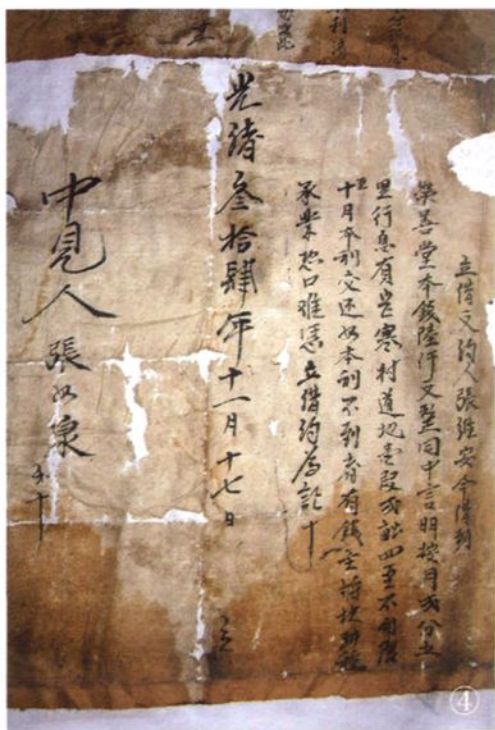 立借文約人張維安今借到
榮善堂本錢陸仟文整同中言明按月弍分五
里行息有岀寒村道地壹段弍畝四至不開限
至十月本利交還如本利不到者有錢主將地耕種
承業恐口難憑立借約為証
光緒叁拾肆年十一月十七日
中見人 張
④